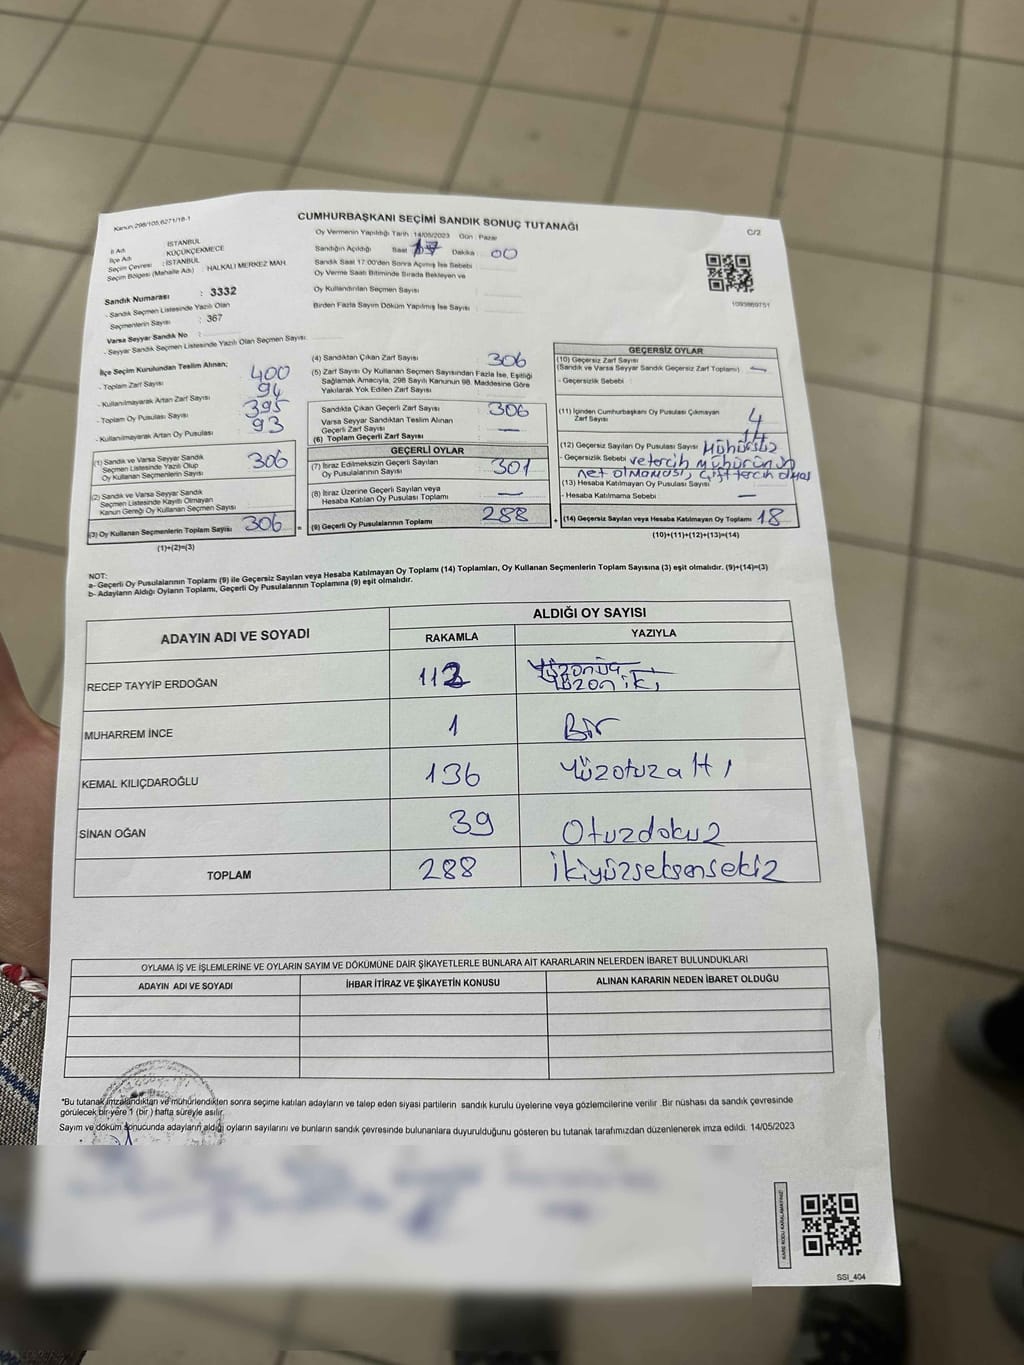 Kanun:298/105,6271/18-1
CUMHURBAŞKANI SEÇİMİ SANDIK SONUÇ TUTANAĞI
C/2
İl Adı : İSTANBUL
İlçe Adı : KÜÇÜKÇEKMECE
Seçim Çevresi : İSTANBUL
Seçim Bölgesi (Mahalle Adı) : HALKALI MERKEZ MAH.
Sandık Numarası : 3332
- Sandık Seçmen Listesinde Yazılı Olan
Seçmenlerin Sayısı : 367
Varsa Seyyar Sandık No :
- Seyyar Sandık Seçmen Listesinde Yazılı Olan Seçmen Sayısı:
Oy Vermenin Yapıldığı Tarih :14/05/2023 Gün : Pazar
Sandığın Açıldığı Saat 17 Dakika : 00
Sandık Saat 17:00'den Sonra Açılmış İse Sebebi :
Oy Verme Saati Bitiminde Sırada Bekleyen ve
Oy Kullandırılan Seçmen Sayısı :
Birden Fazla Sayım Döküm Yapılmış İse Sayısı :
1093869751
İlçe Seçim Kurulundan Teslim Alınan;
- Toplam Zarf Sayısı : 400
- Kullanılmayarak Artan Zarf Sayısı : 94
- Toplam Oy Pusulası Sayısı : 395
- Kullanılmayarak Artan Oy Pusulası : 93
(1) Sandık ve Varsa Seyyar Sandık
Seçmen Listesinde Yazılı Olup
Oy Kullanan Seçmenlerin Sayısı 306
(2) Sandık ve Varsa Seyyar Sandık
Seçmen Listesinde Kayıtlı Olmayan
Kanun Gereği Oy Kullanan Seçmen Sayısı
(3) Oy Kullanan Seçmenlerin Toplam Sayısı 306
(1)+(2)=(3)
(4) Sandıktan Çıkan Zarf Sayısı : 306
(5) Zarf Sayısı Oy Kullanan Seçmen Sayısından Fazla İse, Eşitliği
Sağlamak Amacıyla, 298 Sayılı Kanunun 98. Maddesine Göre
Yakılarak Yok Edilen Zarf Sayısı :
Sandıkta Çıkan Geçerli Zarf Sayısı : 306
Varsa Seyyar Sandıktan Teslim Alınan
Geçerli Zarf Sayısı : —
(6) Toplam Geçerli Zarf Sayısı :
GEÇERLİ OYLAR
(7) İtiraz Edilmeksizin Geçerli Sayılan
Oy Pusulalarının Sayısı : 301
(8) İtiraz Üzerine Geçerli Sayılan veya
Hesaba Katılan Oy Pusulası Toplamı : —
= (9) Geçerli Oy Pusulalarının Toplamı : 288
GEÇERSİZ OYLAR
(10) Geçersiz Zarf Sayısı
(Sandık ve Varsa Seyyar Sandık Geçersiz Zarf Toplamı) : —
- Geçersizlik Sebebi :
(11) İçinden Cumhurbaşkanı Oy Pusulası Çıkmayan
Zarf Sayısı : 4
(12) Geçersiz Sayılan Oy Pusulası Sayısı : 14
- Geçersizlik Sebebi : Mühürsüz
ve tercih mühürünün
net olmaması, çift tercih olması
(13) Hesaba Katılmayan Oy Pusulası Sayısı :
- Hesaba Katılmama Sebebi : —
+ (14) Geçersiz Sayılan veya Hesaba Katılmayan Oy Toplamı : 18
(10)+(11)+(12)+(13)=(14)
NOT:
a- Geçerli Oy Pusulalarının Toplamı (9) ile Geçersiz Sayılan veya Hesaba Katılmayan Oy Toplamı (14) Toplamları, Oy Kullanan Seçmenlerin Toplam Sayısına (3) eşit olmalıdır. (9)+(14)=(3)
b- Adayların Aldığı Oyların Toplamı, Geçerli Oy Pusulalarının Toplamına (9) eşit olmalıdır.
ADAYIN ADI VE SOYADI ALDIĞI OY SAYISI
RAKAMLA YAZIYLA
RECEP TAYYİP ERDOĞAN 112 Yüzonüç
Yüzoniki
MUHARREM İNCE 1 Bir
KEMAL KILIÇDAROĞLU 136 Yüzotuzaltı
SİNAN OĞAN 39 Otuzdokuz
TOPLAM 288 ikiyüzseksensekiz
OYLAMA İŞ VE İŞLEMLERİNE VE OYLARIN SAYIM VE DÖKÜMÜNE DAİR ŞİKAYETLERLE BUNLARA AİT KARARLARIN NELERDEN İBARET BULUNDUKLARI
ADAYIN ADI VE SOYADI İHBAR İTİRAZ VE ŞİKAYETİN KONUSU ALINAN KARARIN NEDEN İBARET OLDUĞU
*Bu tutanak imzalandıktan ve mühürlendikten sonra seçime katılan adayların ve talep eden siyasi partilerin sandık kurulu üyelerine veya gözlemcilerine verilir .Bir nüshası da sandık çevresinde
görülecek bir yere 1 (bir ) hafta süreyle asılır.
Sayım ve döküm sonucunda adayların aldığı oyların sayılarını ve bunların sandık çevresinde bulunanlara duyurulduğunu gösteren bu tutanak tarafımızdan düzenlenerek imza edildi. 14/05/2023
KARE KODU KARALAMAYINIZ!
SSI_404